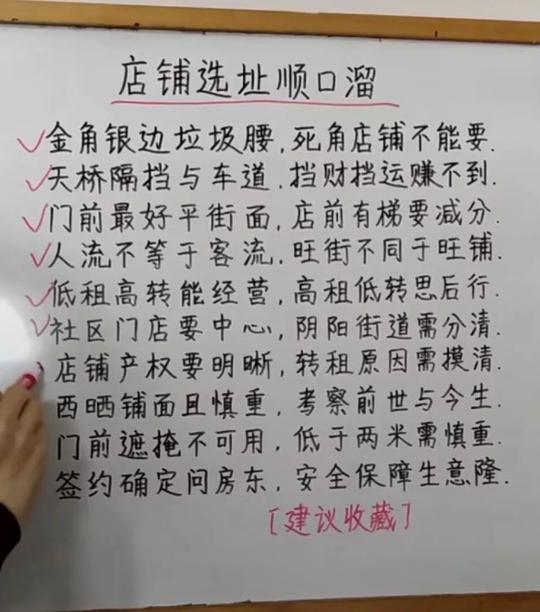 店铺选址顺口溜
金角银边垃圾腰,死角店铺不能要.
天桥隔挡与车道,挡财挡运赚不到.
门前最好平街面,店前有梯要减分.
人流不等于客流,旺街不同于旺铺.
低租高转能经营,高租低转思后行.
社区门店要中心,阴阳街道需分清.
店铺产权要明晰,转租原因需摸清.
西晒铺面且慎重,考察前世与今生.
门前遮掩不可用,低于两米需慎重.
签约确定问房东,安全保障生意隆.
[建议收藏]